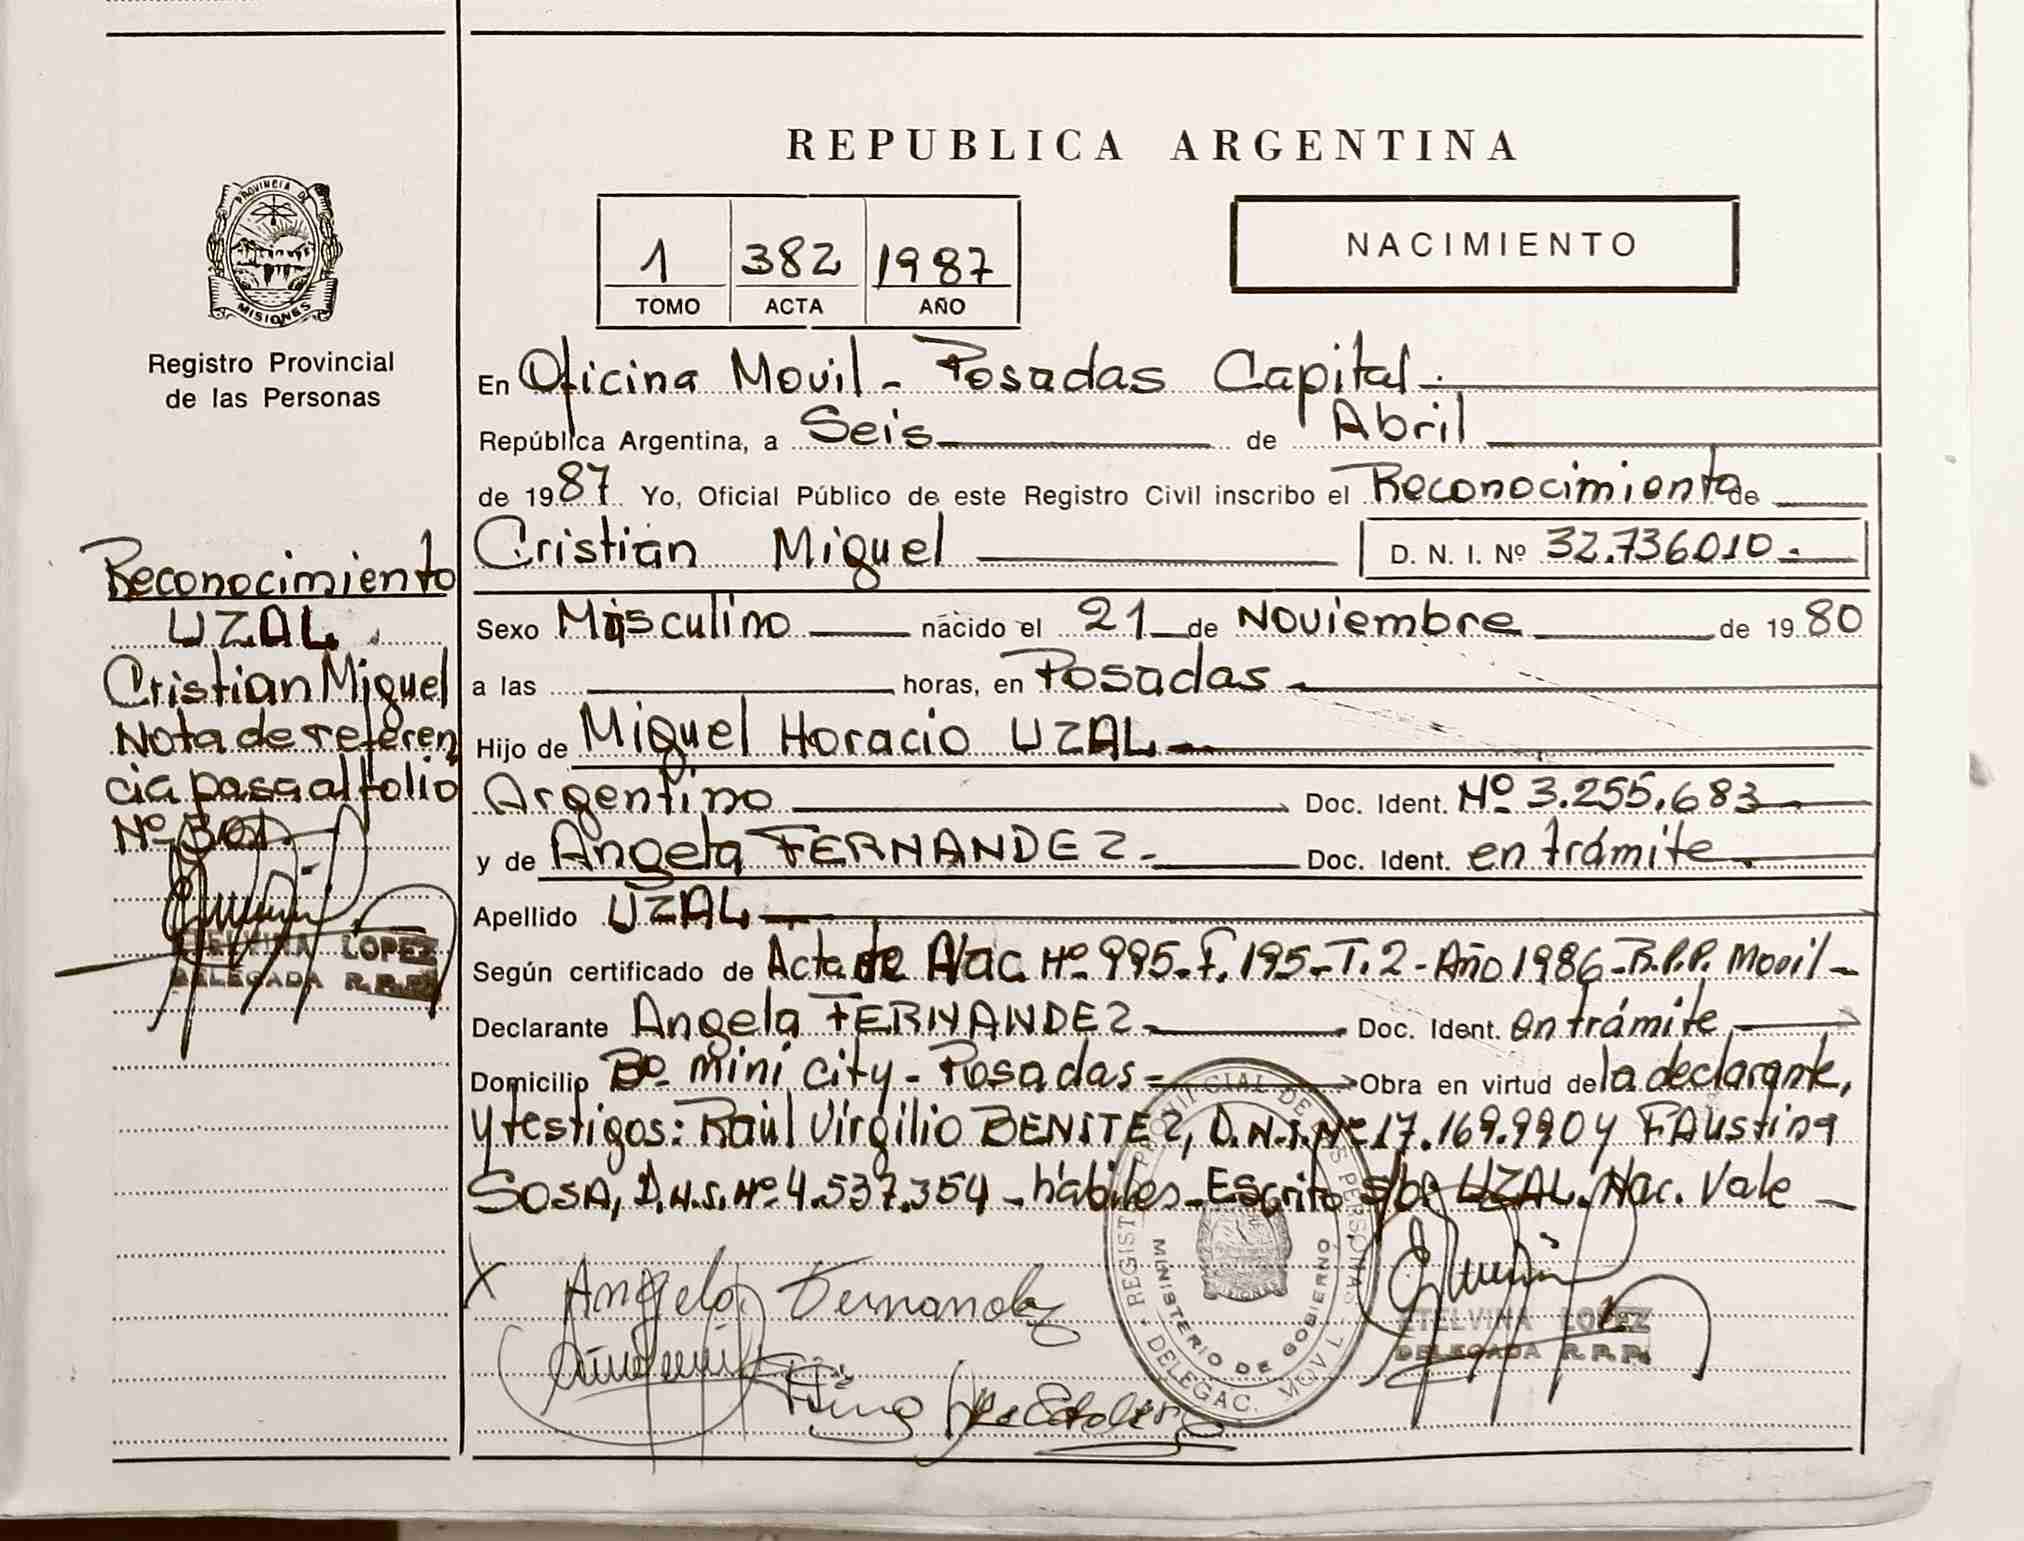 REPUBLICA ARGENTINA
PROVINCIA DE MISIONES
Registro Provincial
de las Personas
1 382 1987
TOMO ACTA AÑO
NACIMIENTO
En Oficina Movil - Posadas Capital.
República Argentina, a Seis de Abril
de 1987 Yo, Oficial Público de este Registro Civil inscribo el Reconocimiento de
Cristian Miguel D. N. I. Nº 32.736.010.-
Sexo Masculino nacido el 21 de Noviembre de 1980
a las horas, en Posadas
Hijo de Miguel Horacio UZAL
Argentino Doc. Ident. Nº 3.255.683
y de Angela FERNANDEZ.- Doc. Ident. en trámite.
Apellido UZAL
Según certificado de Acta de Nac. Nº 995-F. 195-T. 2-Año 1986-R.P.P. Movil-
Declarante Angela FERNANDEZ Doc. Ident. en trámite
Domicilio Bº mini city - Posadas - Obra en virtud de la declarante,
y testigos: Raúl Virgilio BENITEZ, D.N.I. Nº 17.169.990 y FAustina
SOSA, D.N.I. Nº 4.537.354 - hábiles - Escrito s/b: UZAL. Nac. Vale
Reconocimiento
UZAL
Cristian Miguel
Nota de referen
cia pasa al folio
Nº 301.
ETELVINA LOPEZ
DELEGADA R.P.P.
X Angela Fernandez
REGISTRO PROVINCIAL DE LAS PERSONAS
MINISTERIO DE GOBIERNO
DELEGAC. MOVIL
ETELVINA LOPEZ
DELEGADA R.P.P.